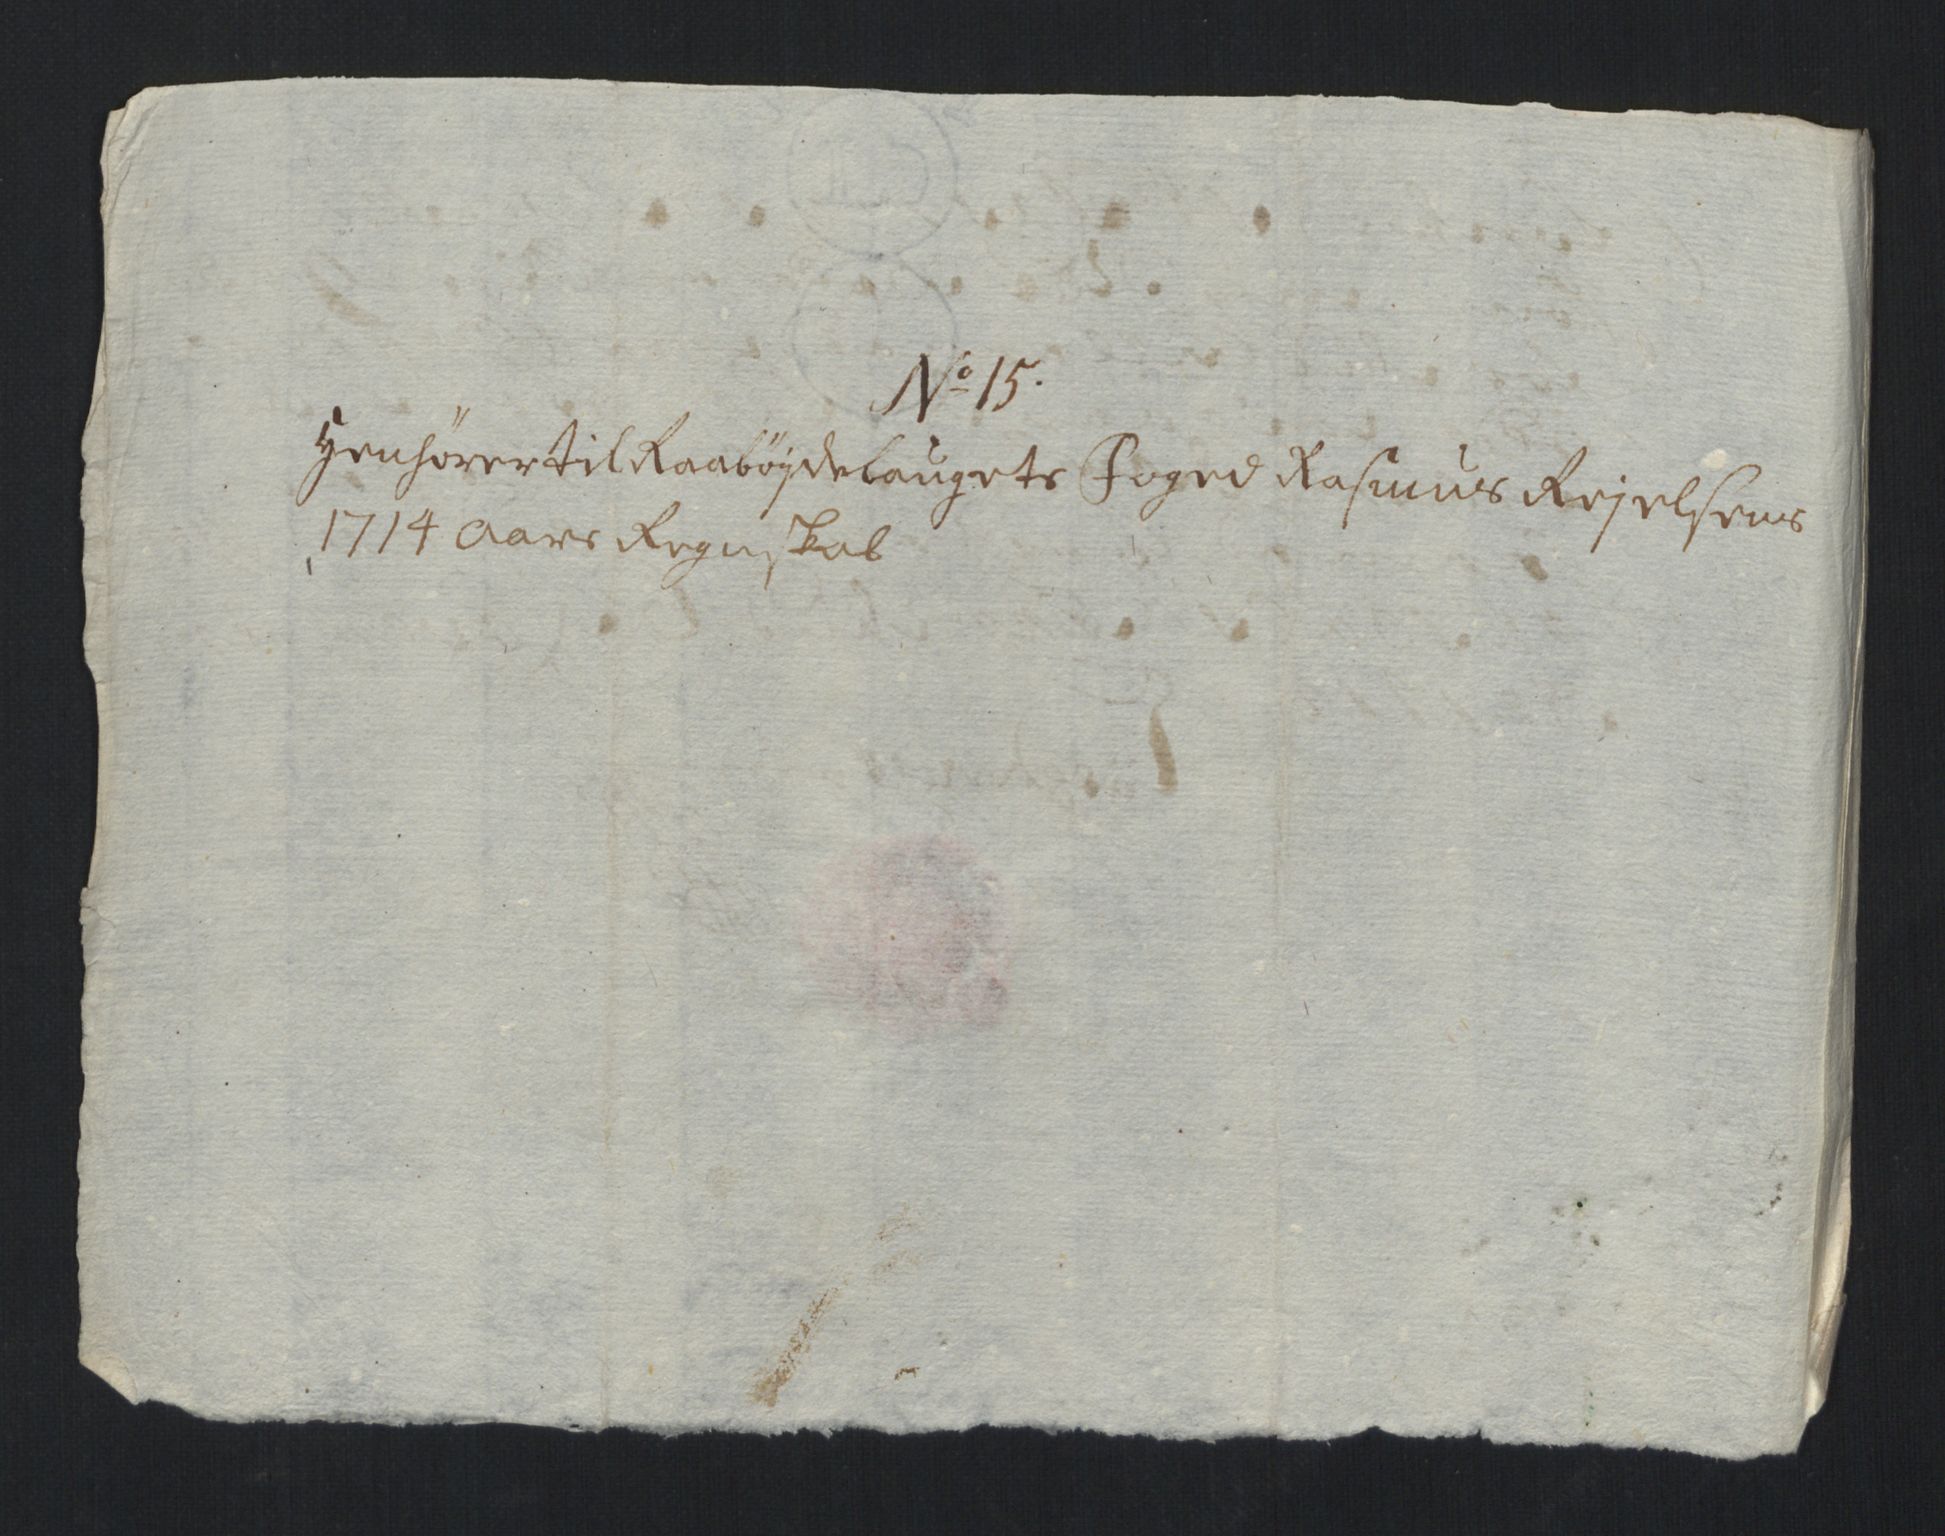 No 15.
Henhører til Raabøjdelaugets Foged Rasmus Rejelsens
1714 Aars Regnskab